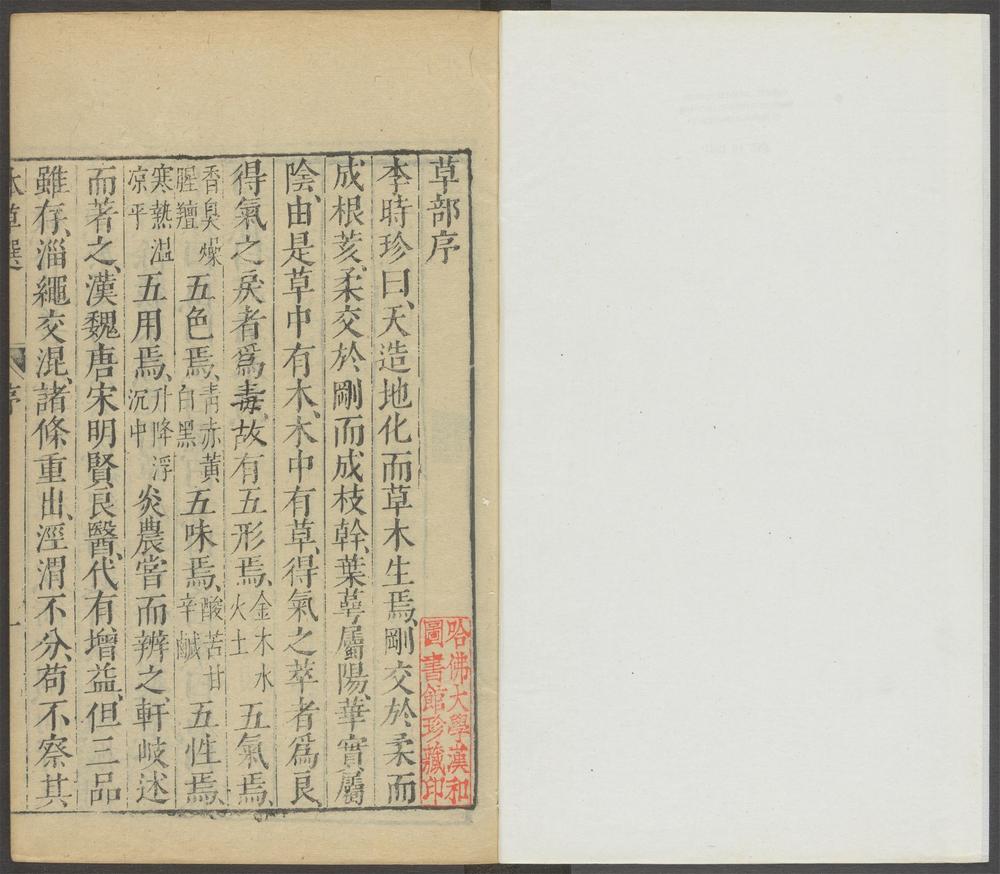 草部序
李時珍曰、天造地化而草木生焉、剛交於柔而
成根荄、柔交於剛而成枝幹、葉萼屬陽、華實屬
陰、由是草中有木、木中有草、得氣之萃者爲良、
得氣之戾者爲毒、故有五形焉、金木水火土五氣焉、
香臭燥腥羶五色焉、青赤黃白黑五味焉、酸苦甘辛鹹五性焉、
寒熱溫凉平五用焉、升降浮沉中炎農嘗而辨之、軒岐述
而著之、漢魏唐宋明賢良醫、代有增益、但三品
雖存、淄繩交混、諸條重出、涇渭不分、苟不察其
本草選 序 一
哈佛大學漢和
圖書館珍藏印